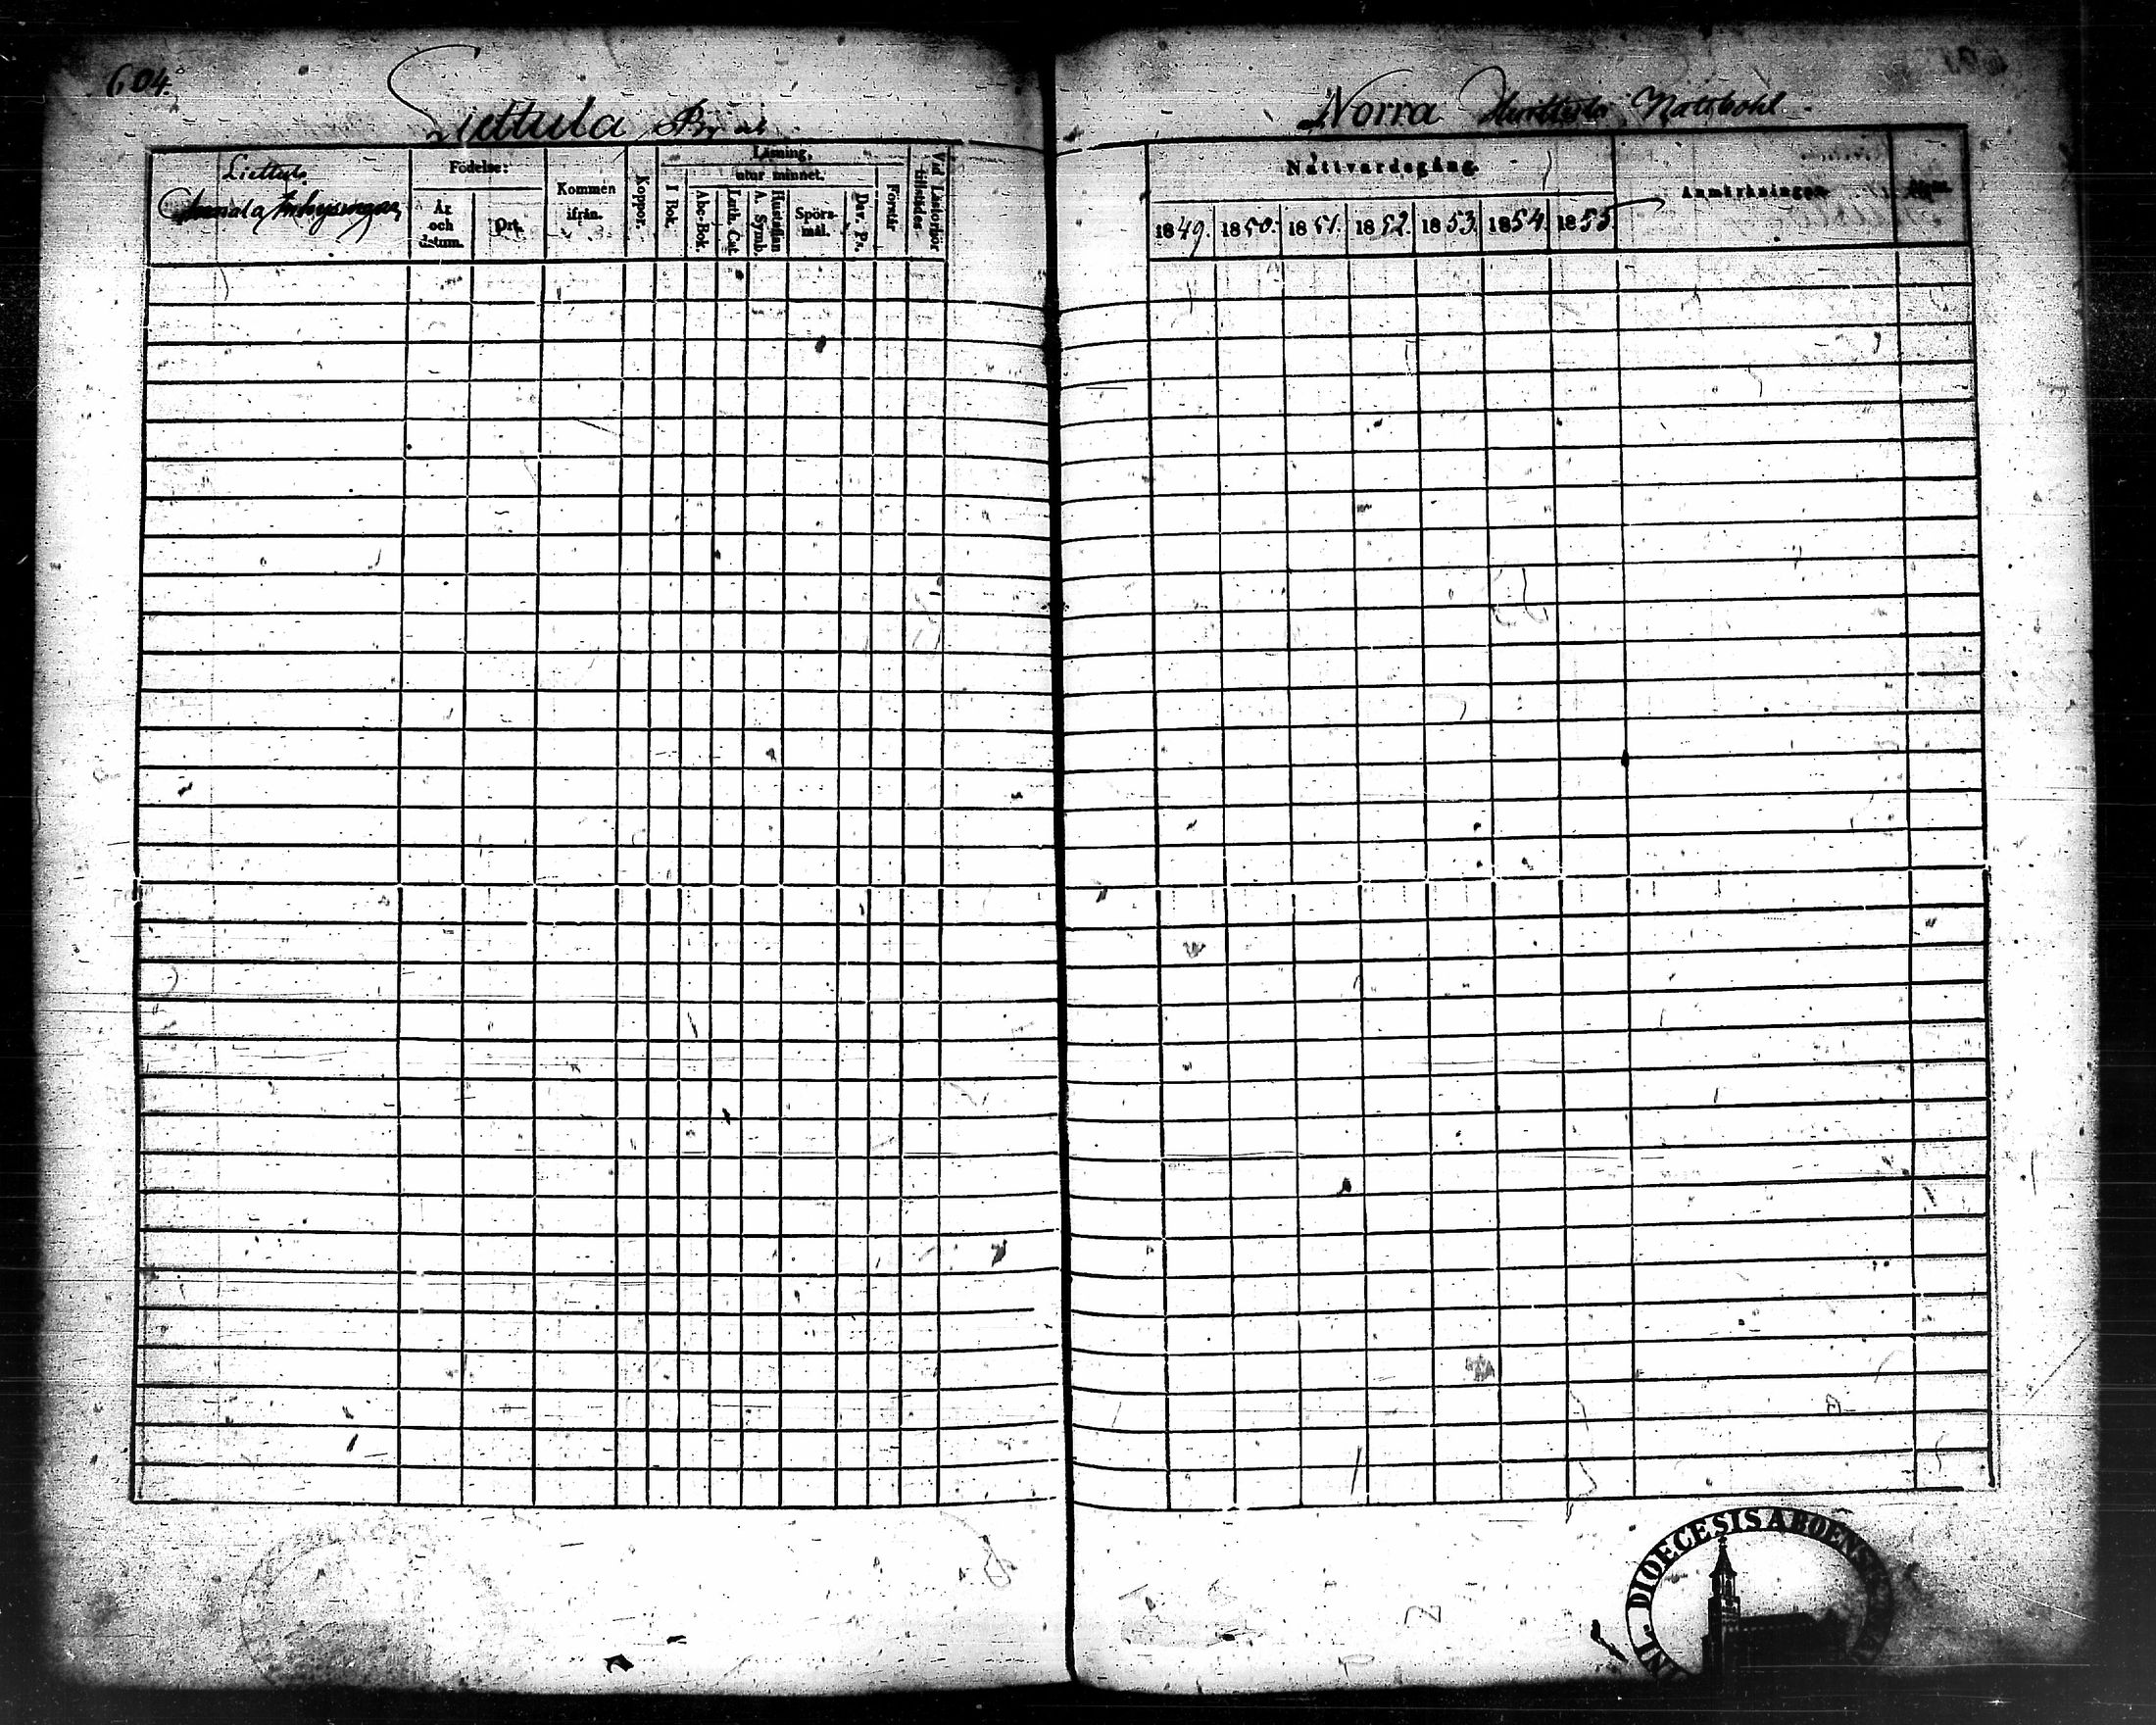 604.
Liettula By
Norra Natsbohl.
Liettula
Inhysingar
Födelse:
År och datum.
Ort.
Kommen ifrån.
Koppor.
Läsning.
utur minnet.
I Bok.
Abc-Bok.
Luth. Cat.
Hustaflan A. Symb.
Spörsmål.
Dav. Ps.
Förstår
Vid Läsförhör tillstädes
Nattvardsgång.
1849. 1850. 1851. 1852. 1853. 1854. 1855.
Anmärkningar.
DIOECESIS ABOENSIS